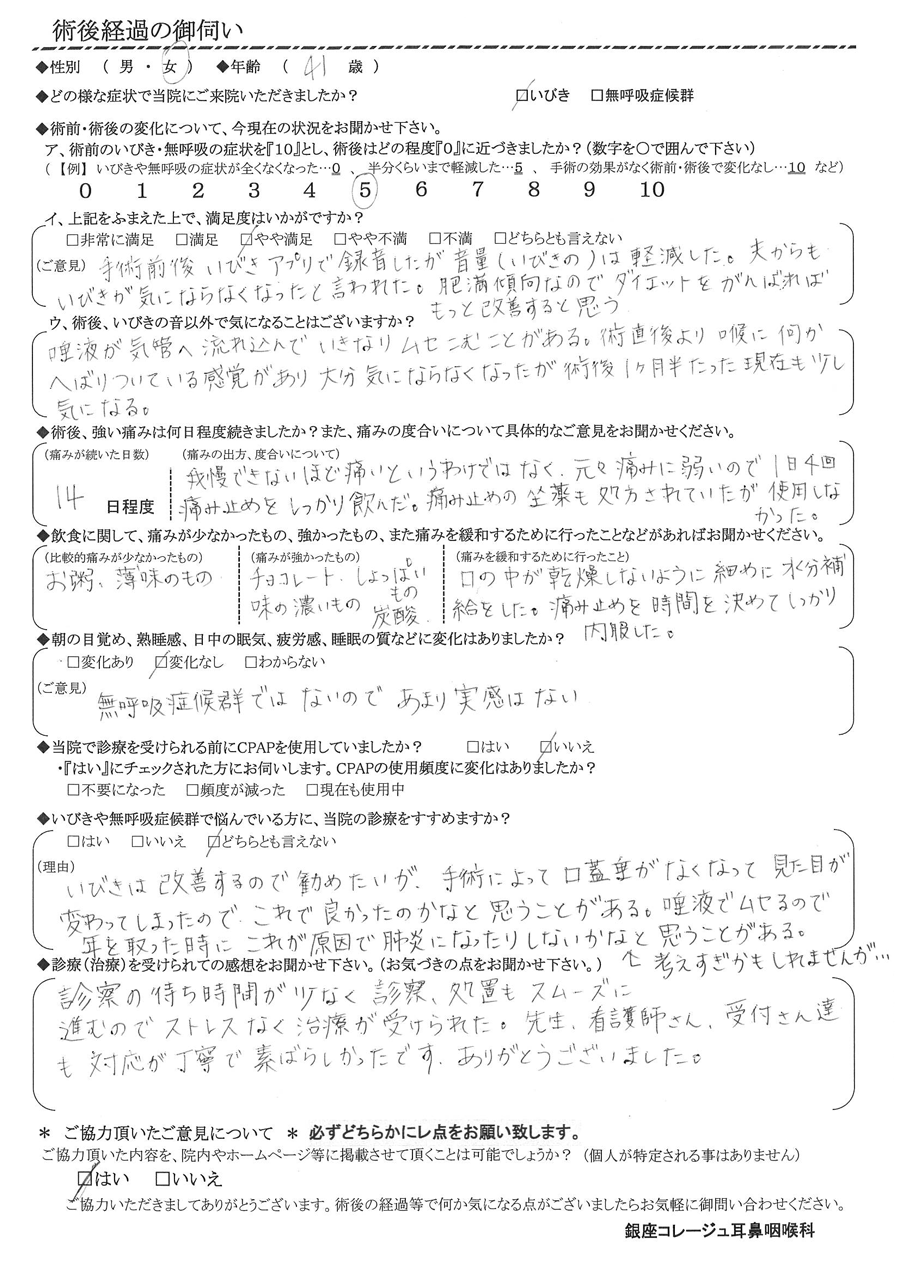 術後経過の御伺い
◆性別 （ 男 ・ 女 ） ◆年齢 （ 41 歳 ）
◆どの様な症状で当院にご来院いただきましたか？ ☑いびき □無呼吸症候群
◆術前・術後の変化について、今現在の状況をお聞かせ下さい。
ア、術前のいびき・無呼吸の症状を『10』とし、術後はどの程度『0』に近づきましたか？（数字を○で囲んで下さい）
（ 【例】 いびきや無呼吸の症状が全くなくなった…0 、 半分くらいまで軽減した…5 、 手術の効果がなく術前・術後で変化なし…10 など）
0 1 2 3 4 5 6 7 8 9 10
イ、上記をふまえた上で、満足度はいかがですか？
□非常に満足 □満足 ☑やや満足 □やや不満 □不満 □どちらとも言えない
（ご意見） 手術前後いびきアプリで録音したが音量(いびきの)は軽減した。夫からも
いびきが気にならなくなったと言われた。肥満傾向なのでダイエットをがんばれば
もっと改善すると思う
ウ、術後、いびきの音以外で気になることはございますか？
唾液が気管へ流れ込んでいきなりムセこむことがある。術直後より喉に何か
へばりついている感覚があり大分気にならなくなったが術後1ヶ月半たった現在も少し
気になる。
◆術後、強い痛みは何日程度続きましたか？また、痛みの度合いについて具体的なご意見をお聞かせください。
（痛みが続いた日数） （痛みの出方、度合いについて）
14 日程度
我慢できないほど痛いというわけではなく、元々痛みに弱いので1日4回
痛み止めをしっかり飲んだ。痛み止めの坐薬も処方されていたが使用しな
かった。
◆飲食に関して、痛みが少なかったもの、強かったもの、また痛みを緩和するために行ったことなどがあればお聞かせください。
（比較的痛みが少なかったもの） （痛みが強かったもの） （痛みを緩和するために行ったこと）
お粥、薄味のもの
チョコレート、しょっぱい
もの
味の濃いもの 炭酸
口の中が乾燥しないように細めに水分補
給をした。痛み止めを時間を決めてしっかり
内服した。
◆朝の目覚め、熟睡感、日中の眠気、疲労感、睡眠の質などに変化はありましたか？
□変化あり ☑変化なし □わからない
（ご意見） 無呼吸症候群ではないのであまり実感はない
◆当院で診療を受けられる前にCPAPを使用していましたか？ □はい ☑いいえ
・『はい』にチェックされた方にお伺いします。CPAPの使用頻度に変化はありましたか？
□不要になった □頻度が減った □現在も使用中
◆いびきや無呼吸症候群で悩んでいる方に、当院の診療をすすめますか？
□はい □いいえ ☑どちらとも言えない
（理由） いびきは改善するので勧めたいが、手術によって口蓋垂がなくなって見た目が
変わってしまったので、これで良かったのかなと思うことがある。唾液でムセるので
年を取った時にこれが原因で肺炎になったりしないかなと思うことがある。
◆診療（治療）を受けられての感想をお聞かせ下さい。（お気づきの点をお聞かせ下さい。） ↑考えすぎかもしれませんが…
診察の待ち時間が少なく診察、処置もスムーズに
進むのでストレスなく治療が受けられた。先生、看護師さん、受付さん達
も対応が丁寧で素ばらしかったです。ありがとうございました。
＊ ご協力頂いたご意見について ＊ 必ずどちらかにレ点をお願い致します。
ご協力頂いた内容を、院内やホームページ等に掲載させて頂くことは可能でしょうか？（個人が特定される事はありません）
☑はい □いいえ
ご協力いただきましてありがとうございます。術後の経過等で何か気になる点がございましたらお気軽に御問い合わせください。
銀座コレージュ耳鼻咽喉科